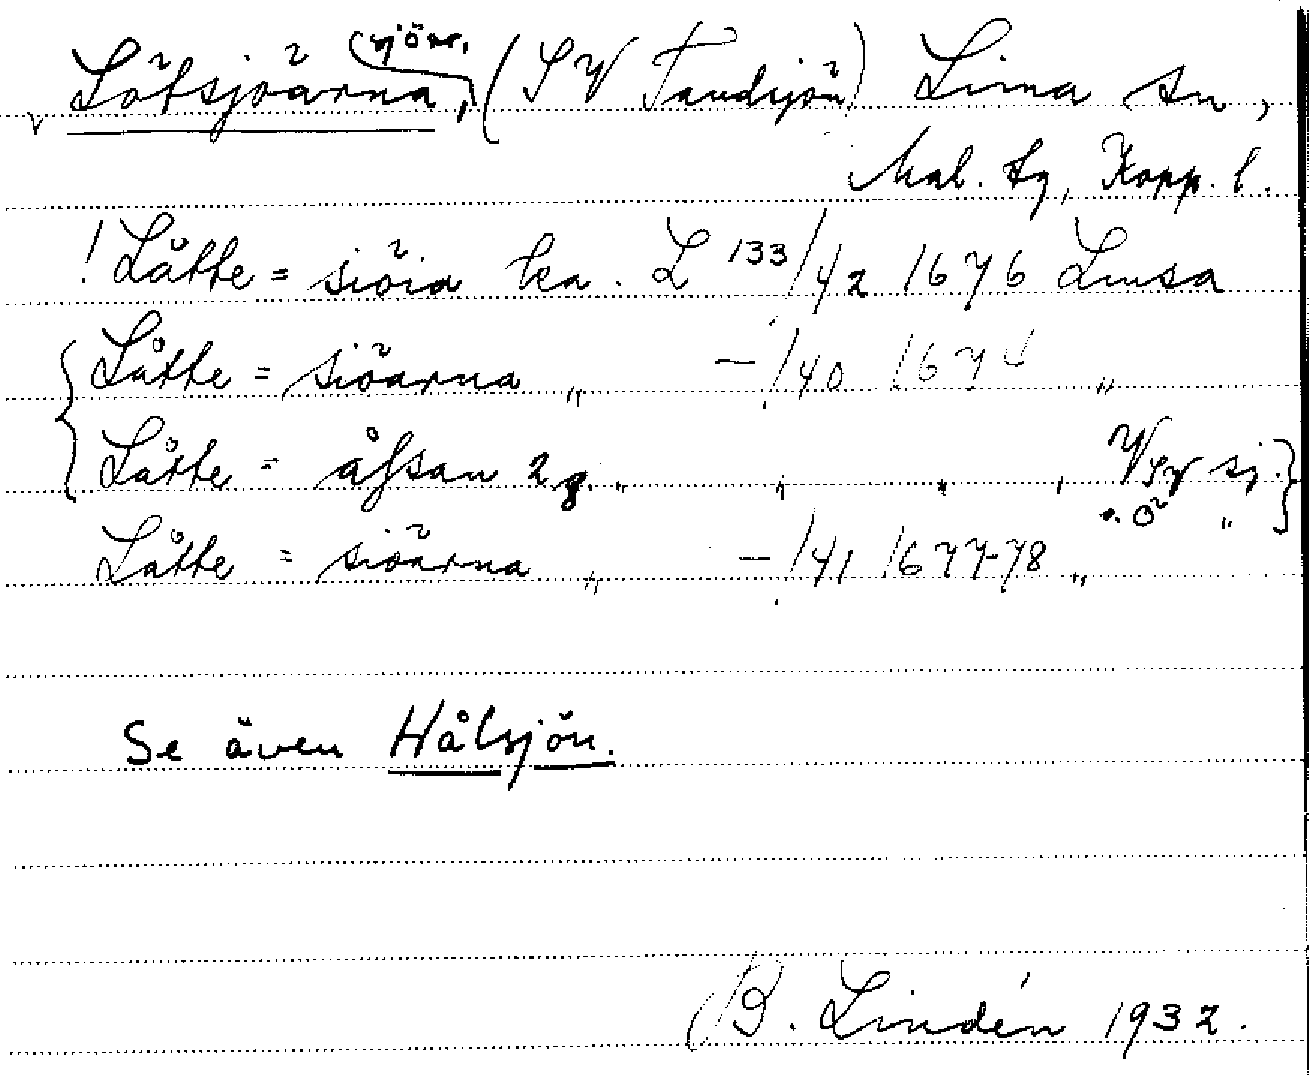 Lötsjöarna, sjöar, (SV Tandsjön) Lima sn,
Mal. tg, Kopp. l.
! Låtte = siöia ka. L 133/42 1676 Limsa
Låtte = siöarna „ — /40 1674 „
Låtte = åhsan 2 g. „ „ „ , V sj.
o. Ö „
Låtte = siöarna „ — /41 1677-78 „
Se även Hålsjön.
B. Lindén 1932.